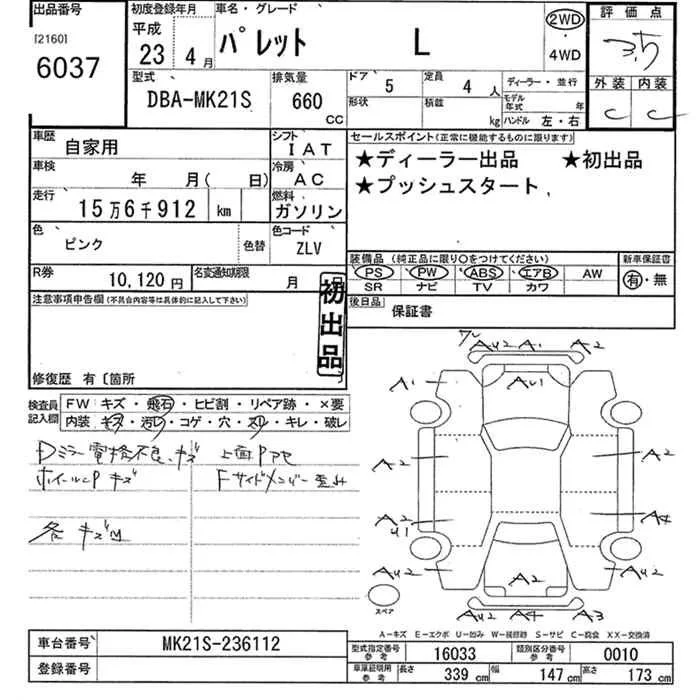 出品番号
[2160]
6037
初度登録年月
平成
23年 4月
車名・グレード
パレット L
2WD
・
4WD
評価点
3.5
外装 内装
C C
型式
DBA-MK21S
排気量
660
CC
ドア 5
定員 4 人
形状
積載 kg
ディーラー・並行
モデル年式 年
ハンドル 左・右
車歴
自家用
シフト
IAT
車検
年 月( 日)
冷房
AC
走行
15万6千912 km
燃料
ガソリン
色
ピンク
色替
色コード
ZLV
R券
10,120円
名変通知期限
月
セールスポイント(正常に機能するものに限ります)
★ディーラー出品 ★初出品
★プッシュスタート
装備品 (純正品に限り○をつけてください)
新車保証書
PS PW ABS エアB AW
SR ナビ TV カワ
有・無
注意事項申告欄(不具合内容等は具体的に記入して下さい)
初出品
後日品
保証書
修復歴 有〔箇所 〕
検査員記入欄
FW キズ・飛石・ヒビ割・リペア跡・×要
内装 キズ・汚レ・コゲ・穴・スレ・キレ・破レ
Dミラー電格不良、キズ 上面Pアセ
ホイールCP キズ Fサイドメンバー歪み
各キズ凹
AU2 A1 A2
A1 AU1 A2
A2 A2
A2
U1
A4
AU2 A2 AU2
AU2 A4 A3
スペア
A-キズ E-エクボ U-凹み W-補修跡 S-サビ C-腐食 XX-交換済
車台番号
MK21S-236112
登録番号
型式指定番号
参考
16033
類別区分番号
参考
0010
車庫証明用
参考
長さ 339 cm
幅 147 cm
高さ 173 cm